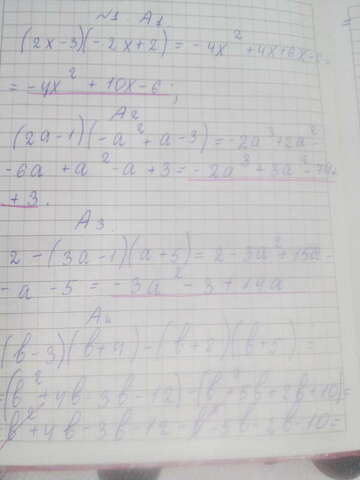 №1 A1
(2x-3)(-2x+2) = -4x² + 4x+6x-
= -4x² + 10x-6;
A2
(2a-1)(-a²+a-3) = -2a³+2a²-
-6a + a² - a + 3 = -2a³ + 3a² - 7a
+ 3.
A3.
2 - (3a-1)(a+5) = 2 - 3a² + 15a -
- a - 5 = -3a² - 3 + 14a
A4
(b-3)(b+4) - (b+2)(b+5) =
=(b²+4b-3b-12)-(b²-5b+2b+10)=
=b²+4b-3b-12-b²-5b-2b-10=